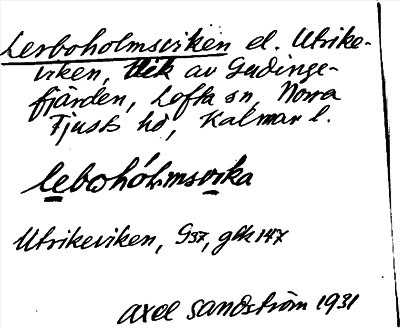 Lerboholmsviken el. Utrike-
viken, vik av Gudinge-
fjärden, Lofta sn, Norra
Tjusts hd, Kalmar l.
lebohólmsvika
Utrikeviken, G37, gbk 147
Axel Sandström 1931